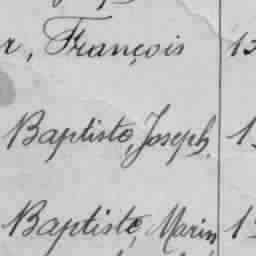 r, François 15
Baptiste, Joseph. 1
Baptiste, Marin 1